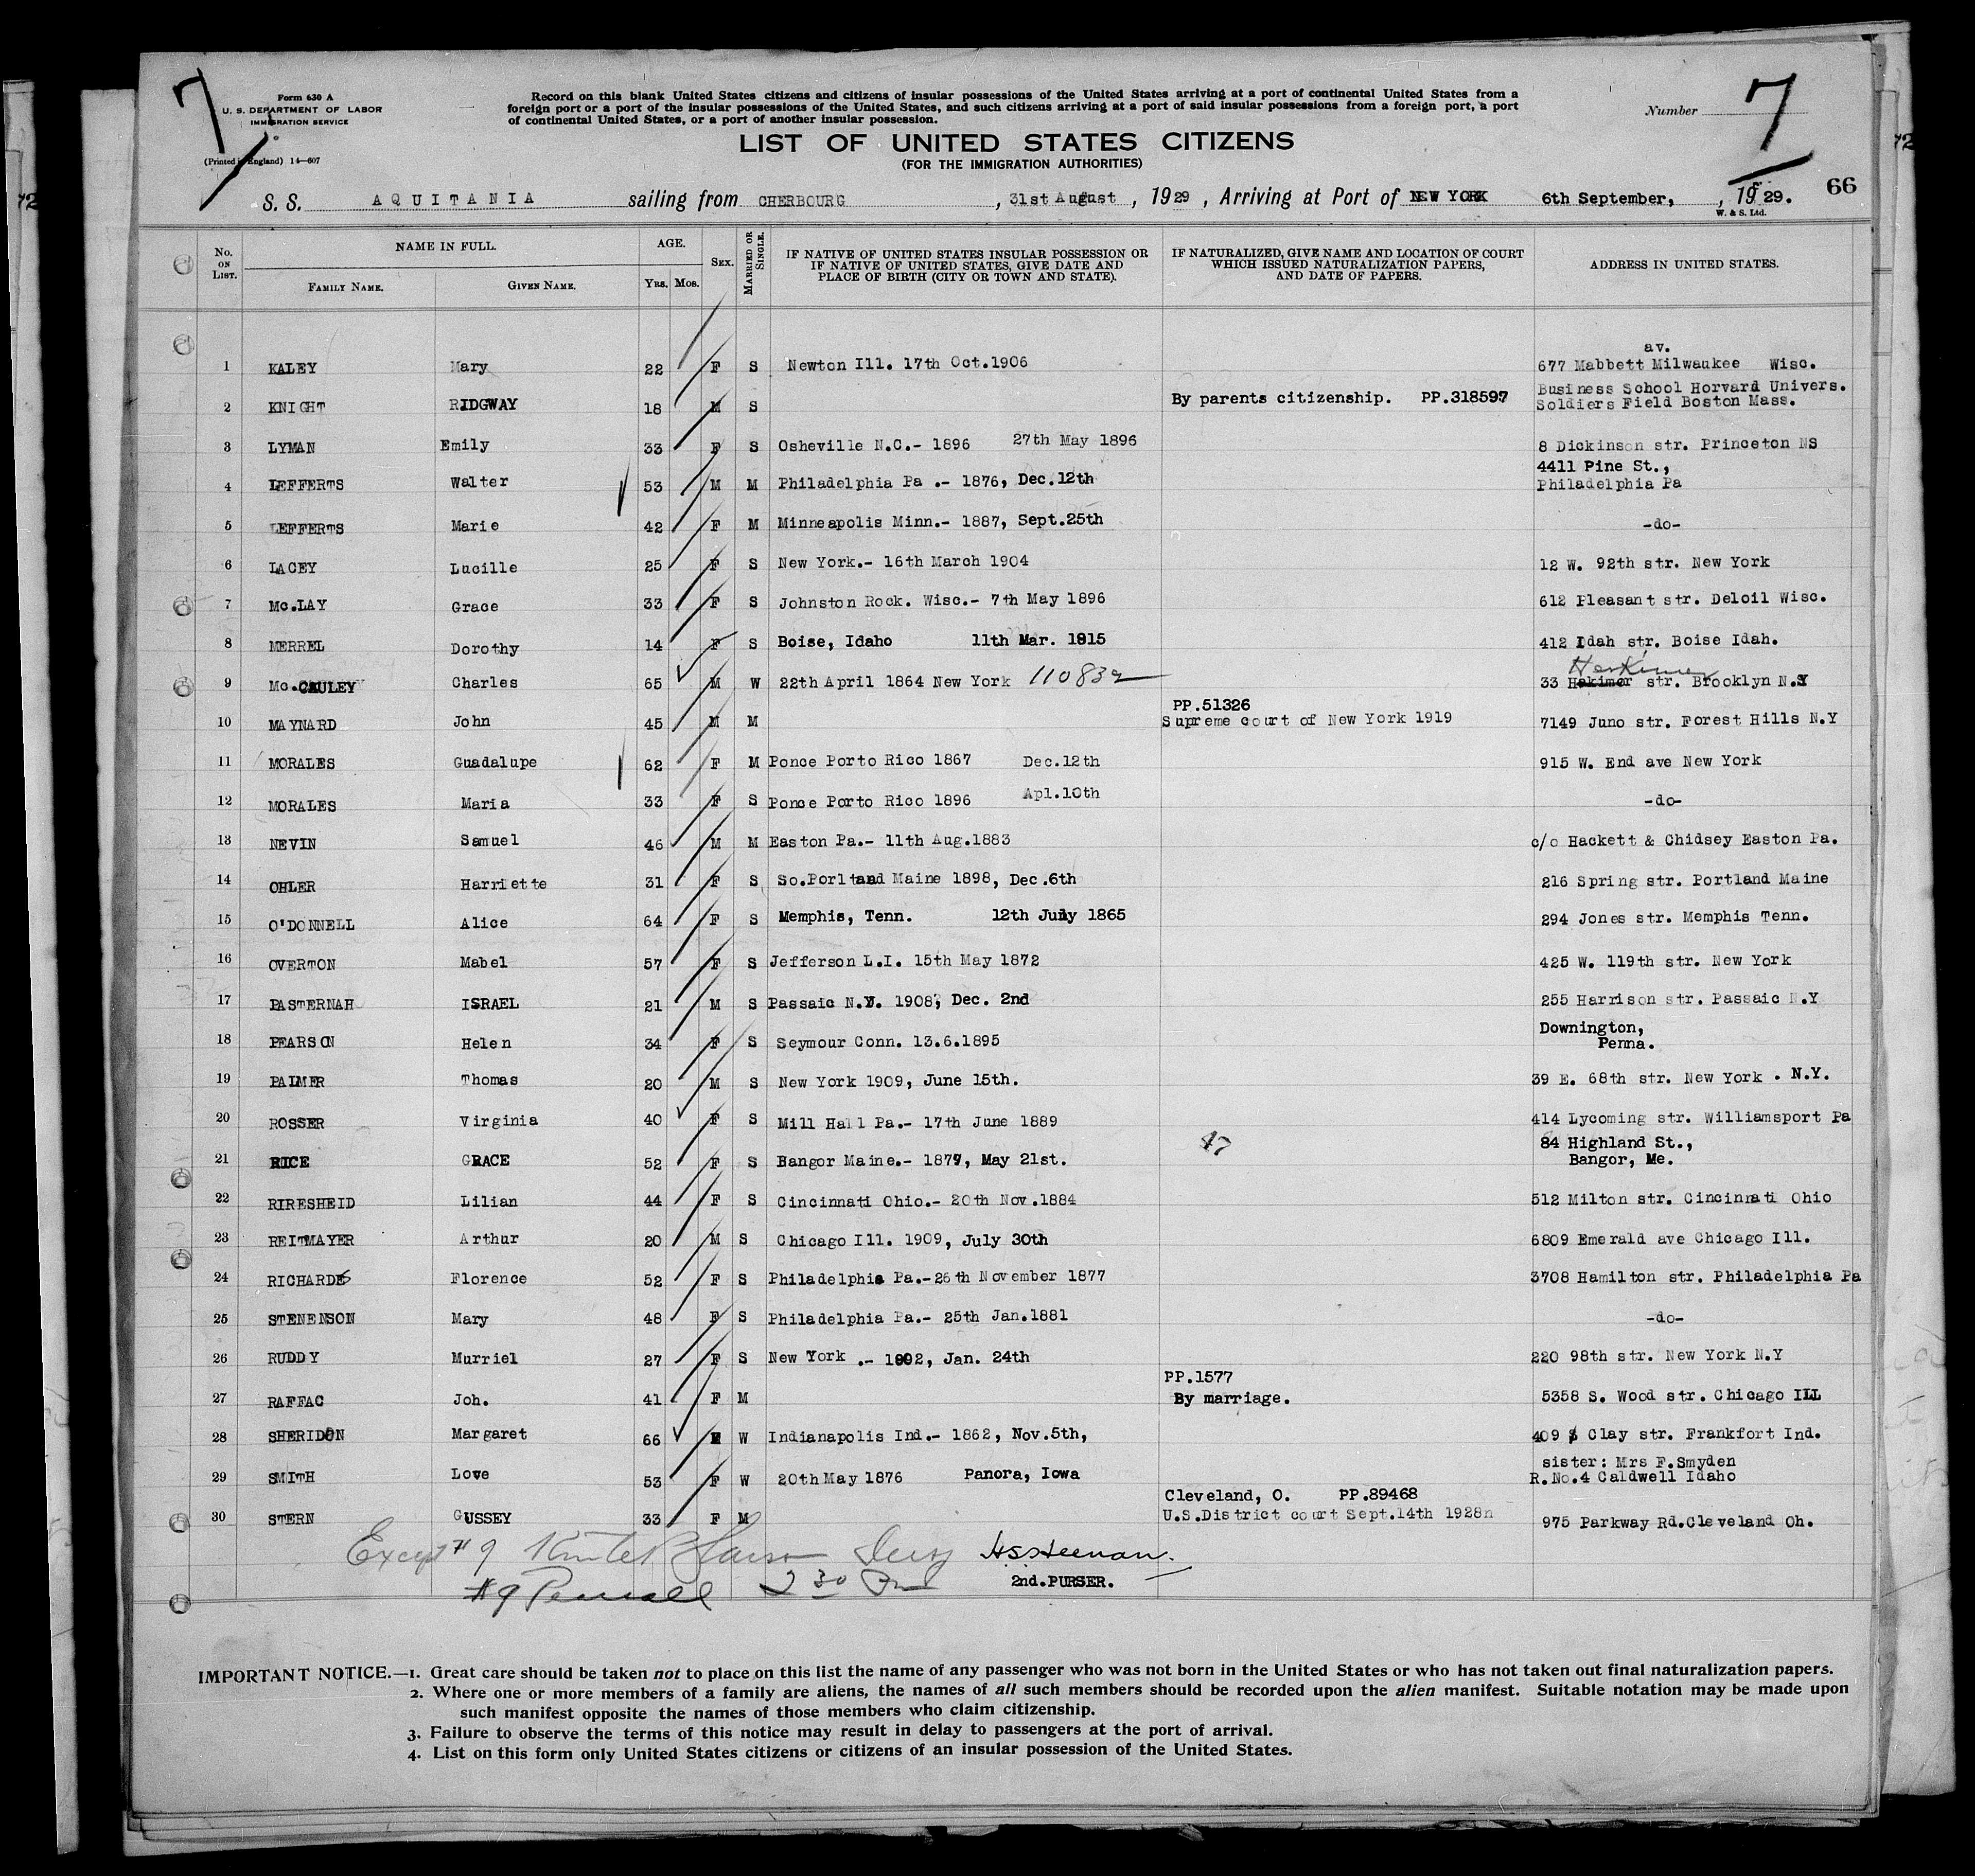 7
Form 630 A
U. S. DEPARTMENT OF LABOR
IMMIGRATION SERVICE
(Printed in England) 14—607
Record on this blank United States citizens and citizens of insular possessions of the United States arriving at a port of continental United States from a
foreign port or a port of the insular possessions of the United States, and such citizens arriving at a port of said insular possessions from a foreign port, a port
of continental United States, or a port of another insular possession.
Number 7
LIST OF UNITED STATES CITIZENS
(FOR THE IMMIGRATION AUTHORITIES)
66
S. S. AQUITANIA sailing from CHERBOURG, 31st August, 1929, Arriving at Port of NEW YORK 6th September, , 1929.
W. & S. Ltd.
No. ON LIST. NAME IN FULL. FAMILY NAME. GIVEN NAME. AGE. YRS. MOS. SEX. MARRIED OR SINGLE. IF NATIVE OF UNITED STATES INSULAR POSSESSION OR IF NATIVE OF UNITED STATES, GIVE DATE AND PLACE OF BIRTH (CITY OR TOWN AND STATE). IF NATURALIZED, GIVE NAME AND LOCATION OF COURT WHICH ISSUED NATURALIZATION PAPERS, AND DATE OF PAPERS. ADDRESS IN UNITED STATES.
av.
1 KALEY Mary 22 F S Newton Ill. 17th Oct.1906 677 Mabbett Milwaukee Wisc.
Business School Horvard Univers.
2 KNIGHT RIDGWAY 18 M S By parents citizenship. PP.318597 Soldiers Field Boston Mass.
3 LYMAN Emily 33 F S Osheville N.C.- 1896 27th May 1896 8 Dickinson str. Princeton NS
4411 Pine St.,
4 LEFFERTS Walter 53 M M Philadelphia Pa .- 1876, Dec.12th Philadelphia Pa
5 LEFFERTS Marie 42 F M Minneapolis Minn.- 1887, Sept.25th -do-
6 LACEY Lucille 25 F S New York.- 16th March 1904 12 W. 92th str. New York
7 Mc.LAY Grace 33 F S Johnston Rock. Wisc.- 7th May 1896 612 Pleasant str. Deloil Wisc.
8 MERREL Dorothy 14 F S Boise, Idaho 11th Mar. 1915 412 Idah str. Boise Idah.
Herkimer
9 Mc.CAULEY Charles 65 M W 22th April 1864 New York 110832 33 Hekimer str. Brooklyn N.Y
PP.51326
10 MAYNARD John 45 M M Supreme court of New York 1919 7149 Juno str. Forest Hills N.Y
11 MORALES Guadalupe 62 F M Ponce Porto Rico 1867 Dec.12th 915 W. End ave New York
12 MORALES Maria 33 F S Ponce Porto Rico 1896 Apl.10th -do-
13 NEVIN Samuel 46 M M Easton Pa.- 11th Aug.1883 c/o Hackett & Chidsey Easton Pa.
14 OHLER Harriette 31 F S So.Porltand Maine 1898, Dec.6th 216 Spring str. Portland Maine
15 O'DONNELL Alice 64 F S Memphis, Tenn. 12th July 1865 294 Jones str. Memphis Tenn.
16 OVERTON Mabel 57 F S Jefferson L.I. 15th May 1872 425 W. 119th str. New York
17 PASTERNAH ISRAEL 21 M S Passaic N.Y. 1908, Dec. 2nd 255 Harrison str. Passaic N.Y
Downington,
18 PEARSON Helen 34 F S Seymour Conn. 13.6.1895 Penna.
19 PALMER Thomas 20 M S New York 1909, June 15th. 39 E. 68th str. New York . N.Y.
20 ROSSER Virginia 40 F S Mill Hall Pa.- 17th June 1889 414 Lycoming str. Williamsport Pa
47 84 Highland St.,
21 RICE GRACE 52 F S Bangor Maine.- 1877, May 21st. Bangor, Me.
22 RIRESHEID Lilian 44 F S Cincinnati Ohio.- 20th Nov.1884 512 Milton str. Cincinnati Ohio
23 REITMAYER Arthur 20 M S Chicago Ill. 1909, July 30th 6809 Emerald ave Chicago Ill.
24 RICHARDS Florence 52 F S Philadelphia Pa.-26th November 1877 3708 Hamilton str. Philadelphia Pa
25 STENENSON Mary 48 F S Philadelphia Pa.- 25th Jan.1881 -do-
26 RUDDY Murriel 27 F S New York .- 1902, Jan. 24th 220 98th str. New York N.Y
PP.1577
27 RAFFAC Joh. 41 F M By marriage. 5358 S. Wood str. Chicago ILL
28 SHERIDON Margaret 66 F W Indianapolis Ind.- 1862, Nov.5th, 409 S Clay str. Frankfort Ind.
sister: Mrs F.Smyden
29 SMITH Love 53 F W 20th May 1876 Panora, Iowa R.No.4 Caldwell Idaho
Cleveland, O. PP.89468
30 STERN GUSSEY 33 F M U.S.District court Sept.14th 1928n 975 Parkway Rd.Cleveland Oh.
Except #9
#9 2 30
2nd.PURSER.
IMPORTANT NOTICE.—1. Great care should be taken not to place on this list the name of any passenger who was not born in the United States or who has not taken out final naturalization papers.
2. Where one or more members of a family are aliens, the names of all such members should be recorded upon the alien manifest. Suitable notation may be made upon
such manifest opposite the names of those members who claim citizenship.
3. Failure to observe the terms of this notice may result in delay to passengers at the port of arrival.
4. List on this form only United States citizens or citizens of an insular possession of the United States.